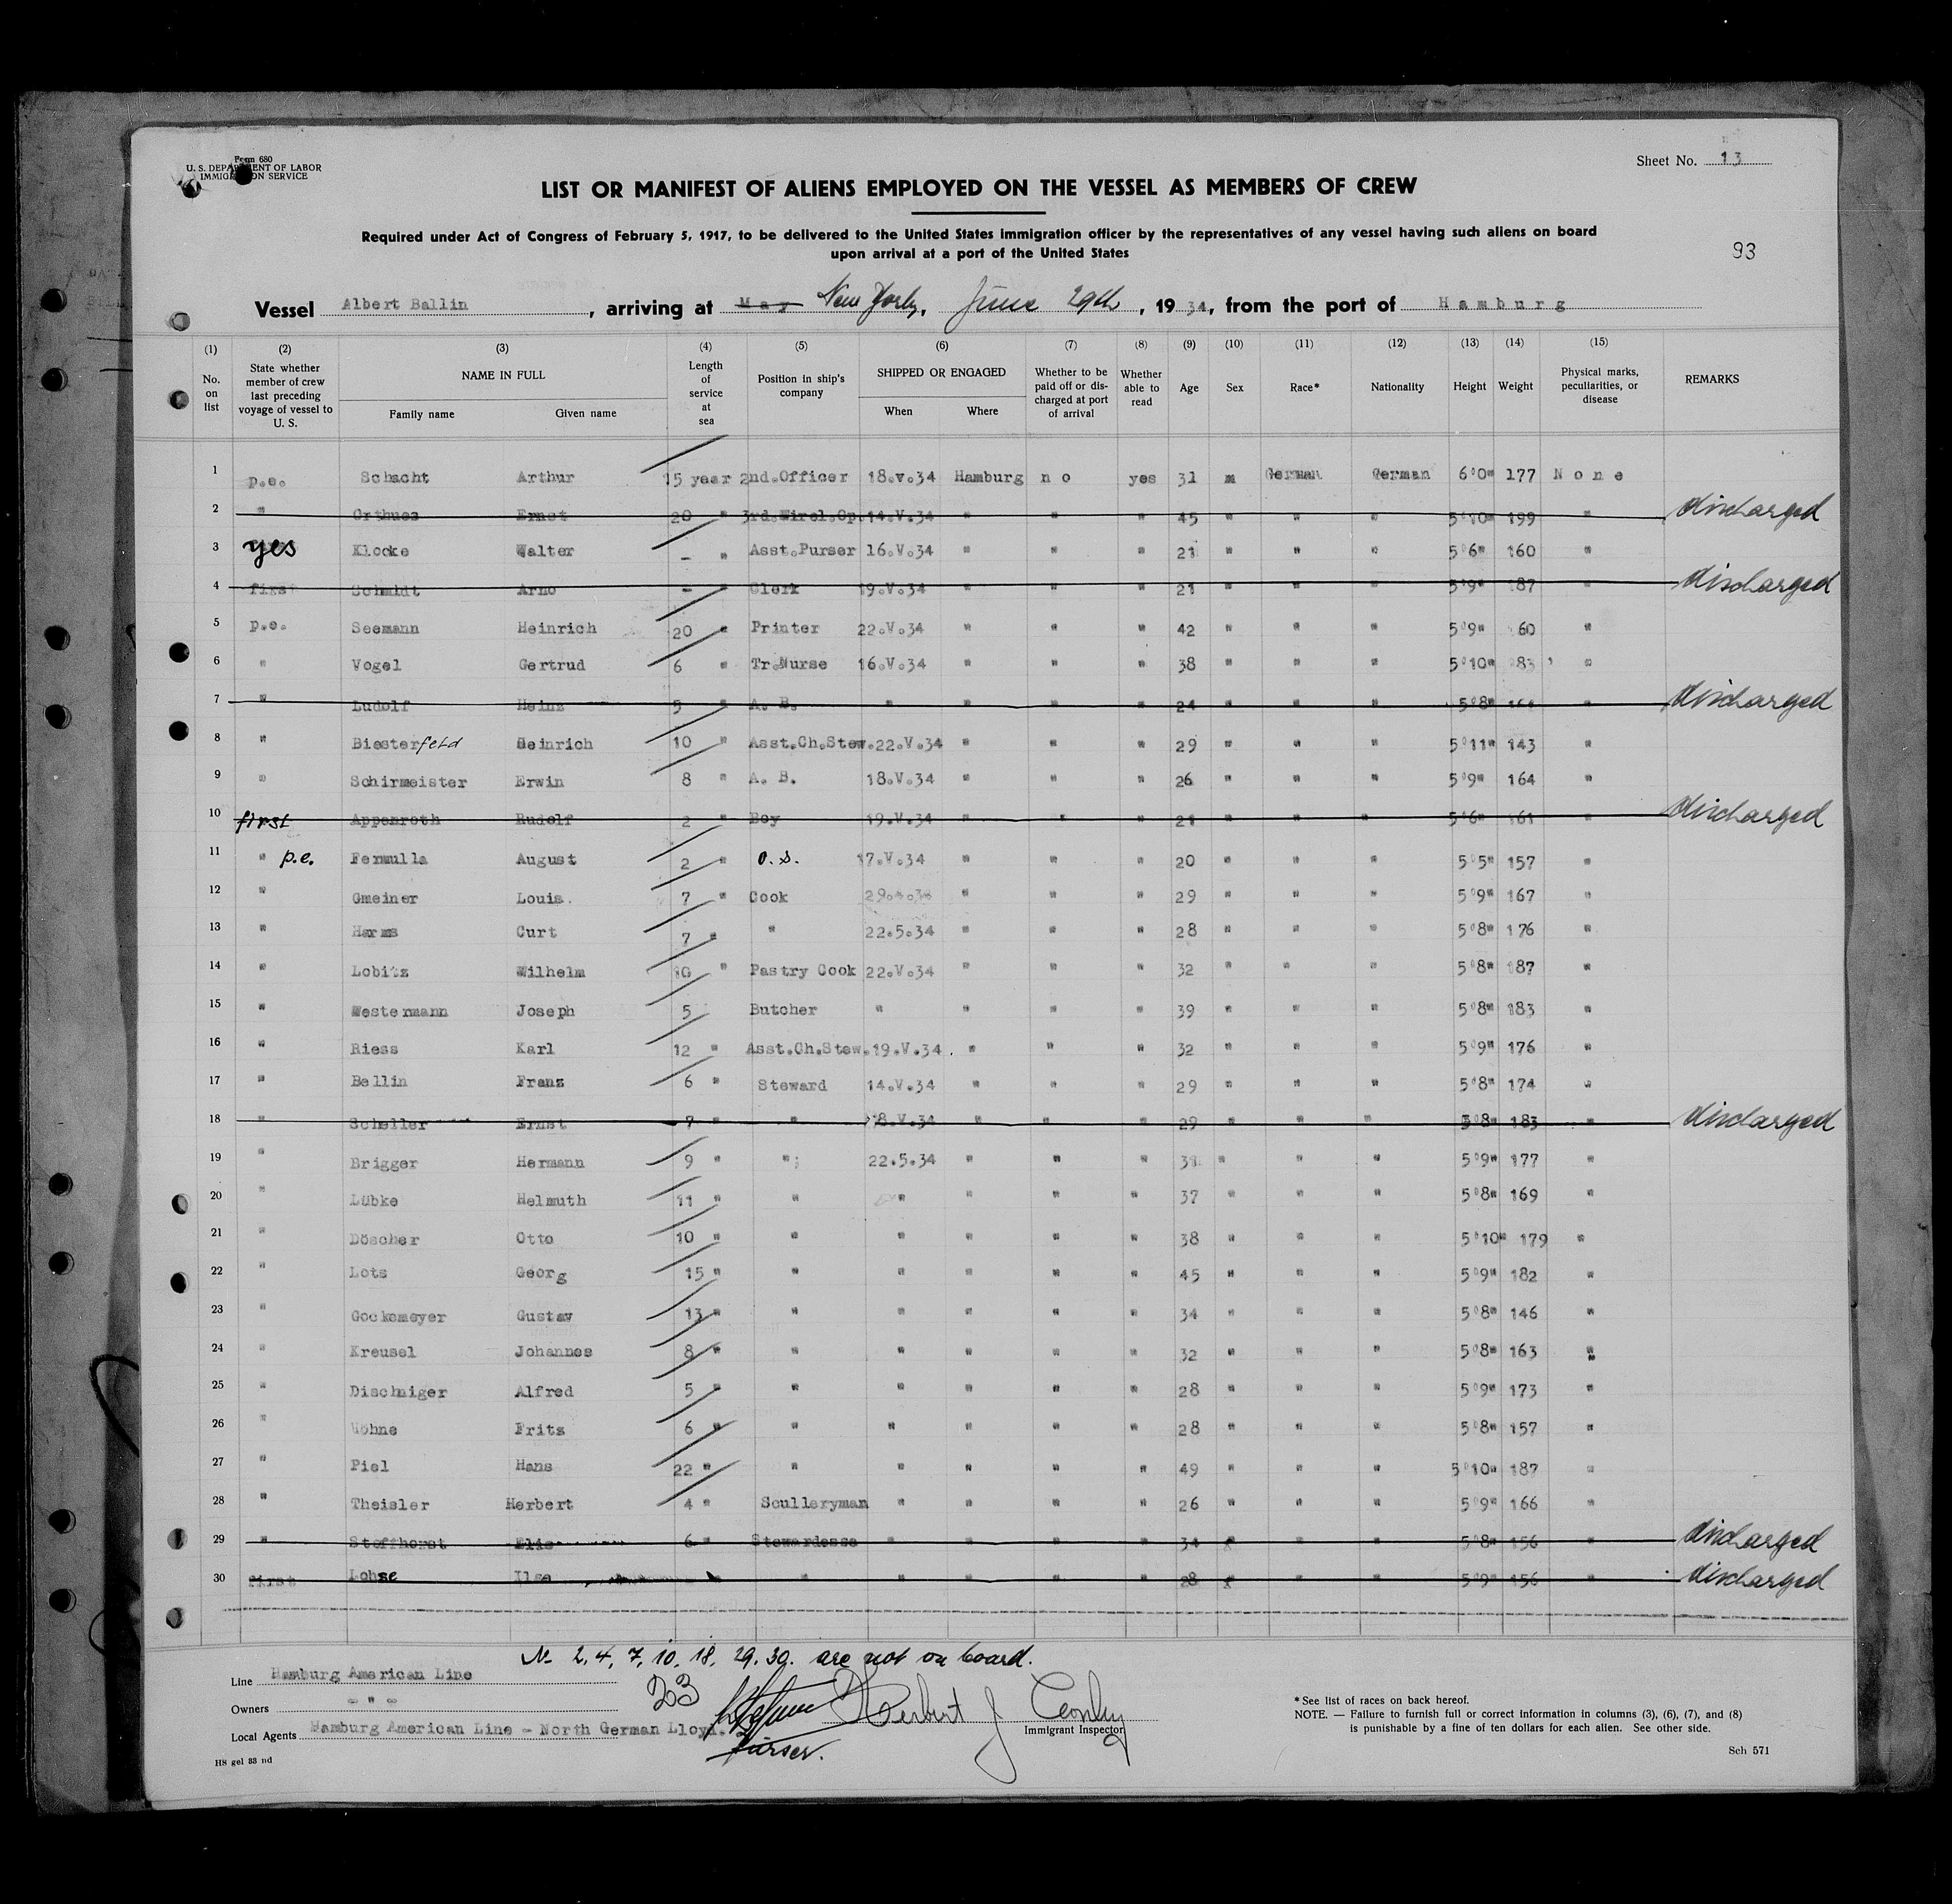 Form 680
U. S. DEPARTMENT OF LABOR
IMMIGRATION SERVICE
Sheet No. 13
LIST OR MANIFEST OF ALIENS EMPLOYED ON THE VESSEL AS MEMBERS OF CREW
Required under Act of Congress of February 5, 1917, to be delivered to the United States immigration officer by the representatives of any vessel having such aliens on board
upon arrival at a port of the United States
93
Vessel Albert Ballin, arriving at May New York, June 29th, 1934, from the port of Hamburg
(1) (2) (3) (4) (5) (6) (7) (8) (9) (10) (11) (12) (13) (14) (15)
No. on list State whether member of crew last preceding voyage of vessel to U. S. NAME IN FULL Family name Given name Length of service at sea Position in ship's company SHIPPED OR ENGAGED When Where Whether to be paid off or discharged at port of arrival Whether able to read Age Sex Race* Nationality Height Weight Physical marks, peculiarities, or disease REMARKS
1 p.e. Schacht Arthur 15 year 2nd.Officer 18.V.34 Hamburg no yes 31 m German German 6'0" 177 None
2 " Orthues Ernst 20 3rd.Wirel.Op. 14.V.34 " " " 45 " " " 5'10" 199 " discharged
3 yes Klocke Walter - " Asst.Purser 16.V.34 " " " 21 " " " 5'6" 160 "
4 first Schmidt Arno - " Clerk 19.V.34 " " " 21 " " " 5'9" 187 " discharged
5 p.e. Seemann Heinrich 20 " Printer 22.V.34 " " " 42 " " " 5'9" 60 "
6 " Vogel Gertrud 6 " Tr.Nurse 16.V.34 " " " 38 " " " 5'10" 83 "
7 " Ludolf Heinz 5 " A. B. " " " " 24 " " " 5'8" " discharged
8 " Biesterfeld Heinrich 10 " Asst.Ch.Stew. 22.V.34 " " " 29 " " " 5'11" 143 "
9 " Schirmeister Erwin 8 " A. B. 18.V.34 " " " 26 " " " 5'9" 164 "
10 first Appenroth Rudolf 2 " Boy 19.V.34 " " " 21 " " " 5'6" 161 " discharged
11 " p.e. Fermulla August 2 " O.S. 17.V.34 " " " 20 " " " 5'5" 157 "
12 " Gmeiner Louis. 7 " Cook " " " 29 " " " 5'9" 167 "
13 " Harms Curt 7 " " 22.5.34 " " " 28 " " " 5'8" 176 "
14 " Lobitz Wilhelm 10 " Pastry Cook 22.V.34 " " " 32 " " " 5'8" 187 "
15 " Westermann Joseph 5 Butcher " " " " 39 " " " 5'8" 183 "
16 " Riess Karl 12 " Asst.Ch.Stew. 19.V.34 " " " 32 " " " 5'9" 176 "
17 " Bellin Franz 6 " Steward 14.V.34 " " " 29 " " " 5'8" 174 "
18 " Scheller Ernst 7 " " 18.V.34 " " " 29 " " " 5'8" 183 " discharged
19 " Brigger Hermann 9 " " 22.5.34 " " " 31 " " " 5'9" 177 "
20 " Lübke Helmuth 11 " " " " " " 37 " " " 5'8" 169 "
21 " Döscher Otto 10 " " " " " " 38 " " " 5'10" 179 "
22 " Lots Georg 15 " " " " " " 45 " " " 5'9" 182 "
23 " Gockemeyer Gustav 13 " " " " " " 34 " " " 5'8" 146 "
24 " Kreusel Johannes 8 " " " " " " 32 " " " 5'8" 163 "
25 " Dischniger Alfred 5 " " " " " " 28 " " " 5'9" 173 "
26 " Vöhne Fritz 6 " " " " " " 28 " " " 5'8" 157 "
27 " Piel Hans 22 " " " " " " 49 " " " 5'10" 187 "
28 " Theisler Herbert 4 " Sculleryman " " " " 26 " " " 5'9" 166 "
29 " Stoffhorst Elis 6 " Stewardess " " " " 34 f " " 5'8" 156 " discharged
30 first Lohse Ilse " " " " " 28 f " " 5'9" 156 " discharged
N- 2, 4, 7, 10, 18, 29, 30. are not on board.
Line Hamburg American Line
Owners - " -
Local Agents Hamburg American Line - North German Lloyd.
23
Purser.
Herbert J Conley
Immigrant Inspector
* See list of races on back hereof.
NOTE. — Failure to furnish full or correct information in columns (3), (6), (7), and (8)
is punishable by a fine of ten dollars for each alien. See other side.
HS gel 33 nd
Sch 571